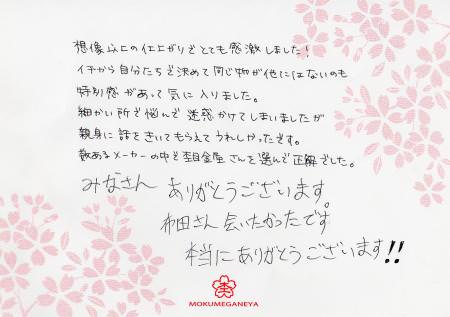 想像以上の仕上がりでとても感激しました!
イチから自分たちで決めて同じ物が他にはないのも
特別感があって気に入りました。
細かい所で悩んで迷惑かけてしまいましたが
親身に話をきいてもらえてうれしかったです。
数あるメーカーの中で杢目金屋さんを選んで正解でした。
みなさん ありがとうございます。
布田さん会いたかったです
本当にありがとうございます!!
杢
MOKUMEGANEYA